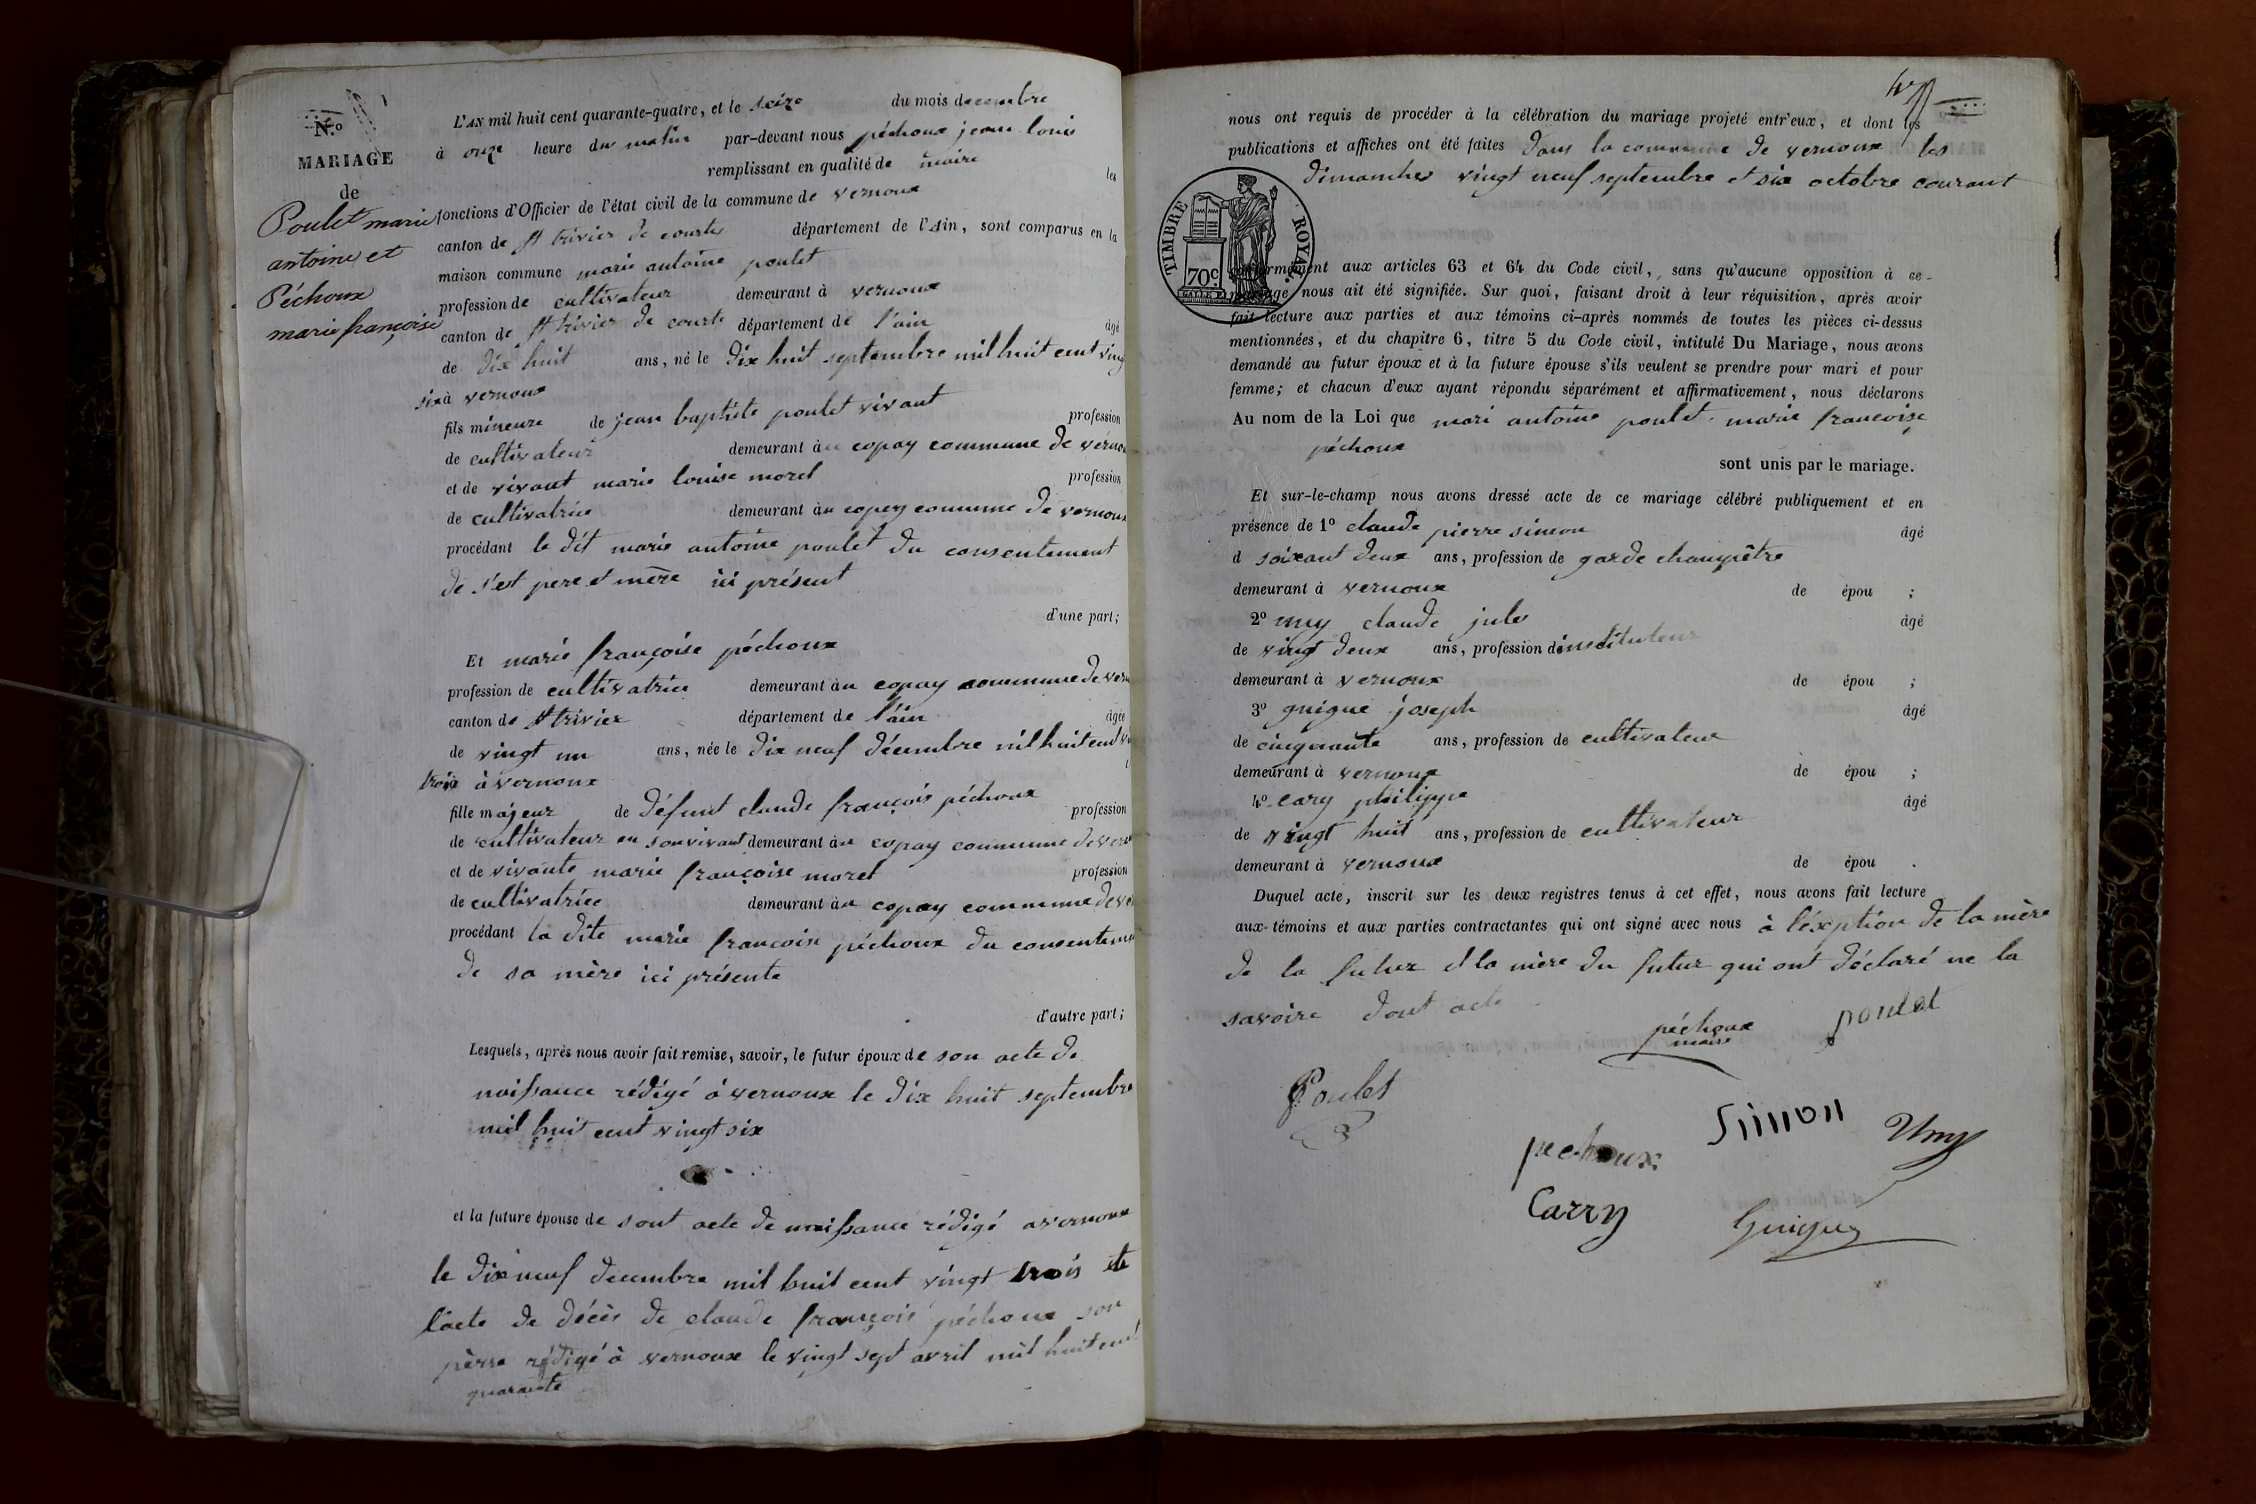 N.º
MARIAGE
de
Poulet marie
antoine et
Péchoux
marie françoise
L'AN mil huit cent quarante-quatre, et le seize du mois decembre
à onze heure du matin par-devant nous péchoux jean louis
remplissant en qualité de maire les
fonctions d'Officier de l'état civil de la commune de vernoux
canton de St trivier de courtes département de l'Ain, sont comparus en la
maison commune marie antoine poulet
profession de cultivateur demeurant à vernoux
canton de St trivier de courte département de l'ain âgé
de dix huit ans, né le dix huit septembre mil huit cent vingt
six à vernoux
fils mineure de jean baptiste poulet vivant profession
de cultivateur demeurant à au copay commune de vernoux
et de vivant marie louise morel profession
de cultivatrice demeurant à au copey commune de vernoux
procédant le dit marie antoine poulet du consentement
de s'est pere et mère ici présent
d'une part;
Et marie françoise péchoux
profession de cultivatrice demeurant à au copay commune de vern
canton de St trivier département de l'ain âgée
de vingt un ans, née le dix neuf décembre mil huit cent vin
trois à vernoux
fille majeur de défunt claude françois péchoux profession
de cultivateur en son vivant demeurant à au copay commune de vern
et de vivante marie françoise morel profession
de cultivatrice demeurant à au copay commune de ver
procédant la dite marie francoise péchoux du consenteme
de sa mère ici présente
d'autre part;
Lesquels, après nous avoir fait remise, savoir, le futur époux de son acte de
naissance rédigé à vernoux le dix huit septembre
mil huit cent vingt six
et la future épouse de sont acte de naissance rédigé a vernoux
le dix neuf decembre mil huit cent vingt trois et
l'acte de décès de claude françois péchoux son
pèrre rédigé à vernoux le vingt sept avril mil huit cent
quarante
nous ont requis de procéder à la célébration du mariage projeté entr'eux, et dont les
publications et affiches ont été faites dans la commune de vernoux les
dimanches vingt neuf septembre et six octobre courant
TIMBRE ROYAL
70c.
conformément aux articles 63 et 64 du Code civil, sans qu'aucune opposition à ce
mariage nous ait été signifiée. Sur quoi, faisant droit à leur réquisition, après avoir
fait lecture aux parties et aux témoins ci-après nommés de toutes les pièces ci-dessus
mentionnées, et du chapitre 6, titre 5 du Code civil, intitulé Du Mariage, nous avons
demandé au futur époux et à la future épouse s'ils veulent se prendre pour mari et pour
femme; et chacun d'eux ayant répondu séparément et affirmativement, nous déclarons
Au nom de la Loi que mari antoine poulet marie francoise
péchoux
sont unis par le mariage.
Et sur-le-champ nous avons dressé acte de ce mariage célébré publiquement et en
présence de 1º claude pierre simon âgé
d soixant deux ans, profession de garde champêtre
demeurant à vernoux de épou ;
2º uny claude jules âgé
de vingt deux ans, profession d'instituteur
demeurant à vernoux de épou ;
3º guigue joseph âgé
de cinquante ans, profession de cultivateur
demeurant à vernoux de épou ;
4º cary philippe âgé
de vingt huit ans, profession de cultivateur
demeurant à vernoux de épou .
Duquel acte, inscrit sur les deux registres tenus à cet effet, nous avons fait lecture
aux témoins et aux parties contractantes qui ont signé avec nous à l'éxption de la mère
de la futur et la mère du futur qui ont déclaré ne la
savoire dont acte
péchoux
maire
poulet
Poulet
Simon
Uny
pechoux
Carry
Guigue